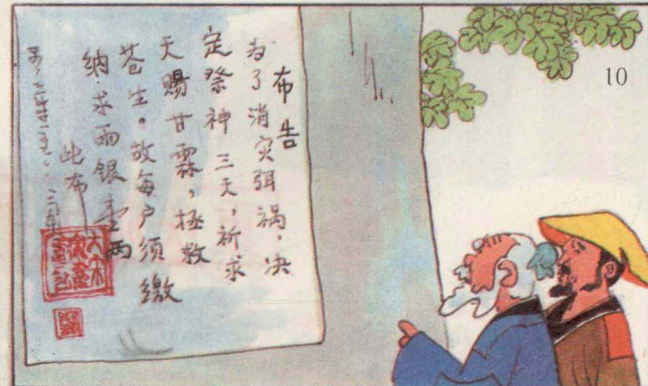 布告
为了消灾弭祸,决
定祭神三天,祈求
天赐甘霖,拯救
苍生。故每户须缴
纳求雨银壹两
此布
10